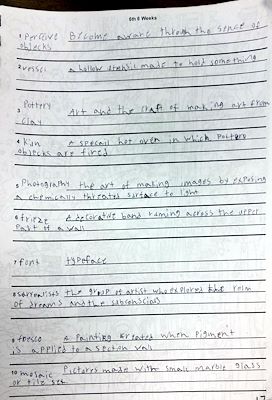 6th 6 Weeks
1 Perceive Become aware through the sense of
objects
2 vessel a hollow utensil made to hold something
3 Pottery Art and the craft of making art from
clay
4 Kiln A specail hot oven in which Pottery
objects are fired
5 Photography the art of making images by exposing
a chemically threated surface to light
6 frieze A decorative band running across the upper
Part of a wall
7 font typeface
8 surrealists the group of artist who explored the relm
of dreams and the subconscious
9 fresco A Painting created when pigment
is applied to a section wall
10 mosaic Pictures made with small marble glass
or tile set